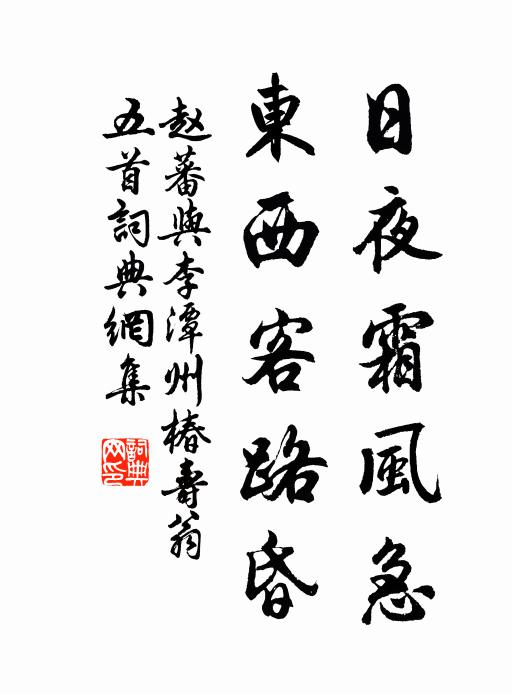 日夜霜風急
東西客路昏
赵蕃與李潭州椿壽翁
五首詞典網集
詞典網印